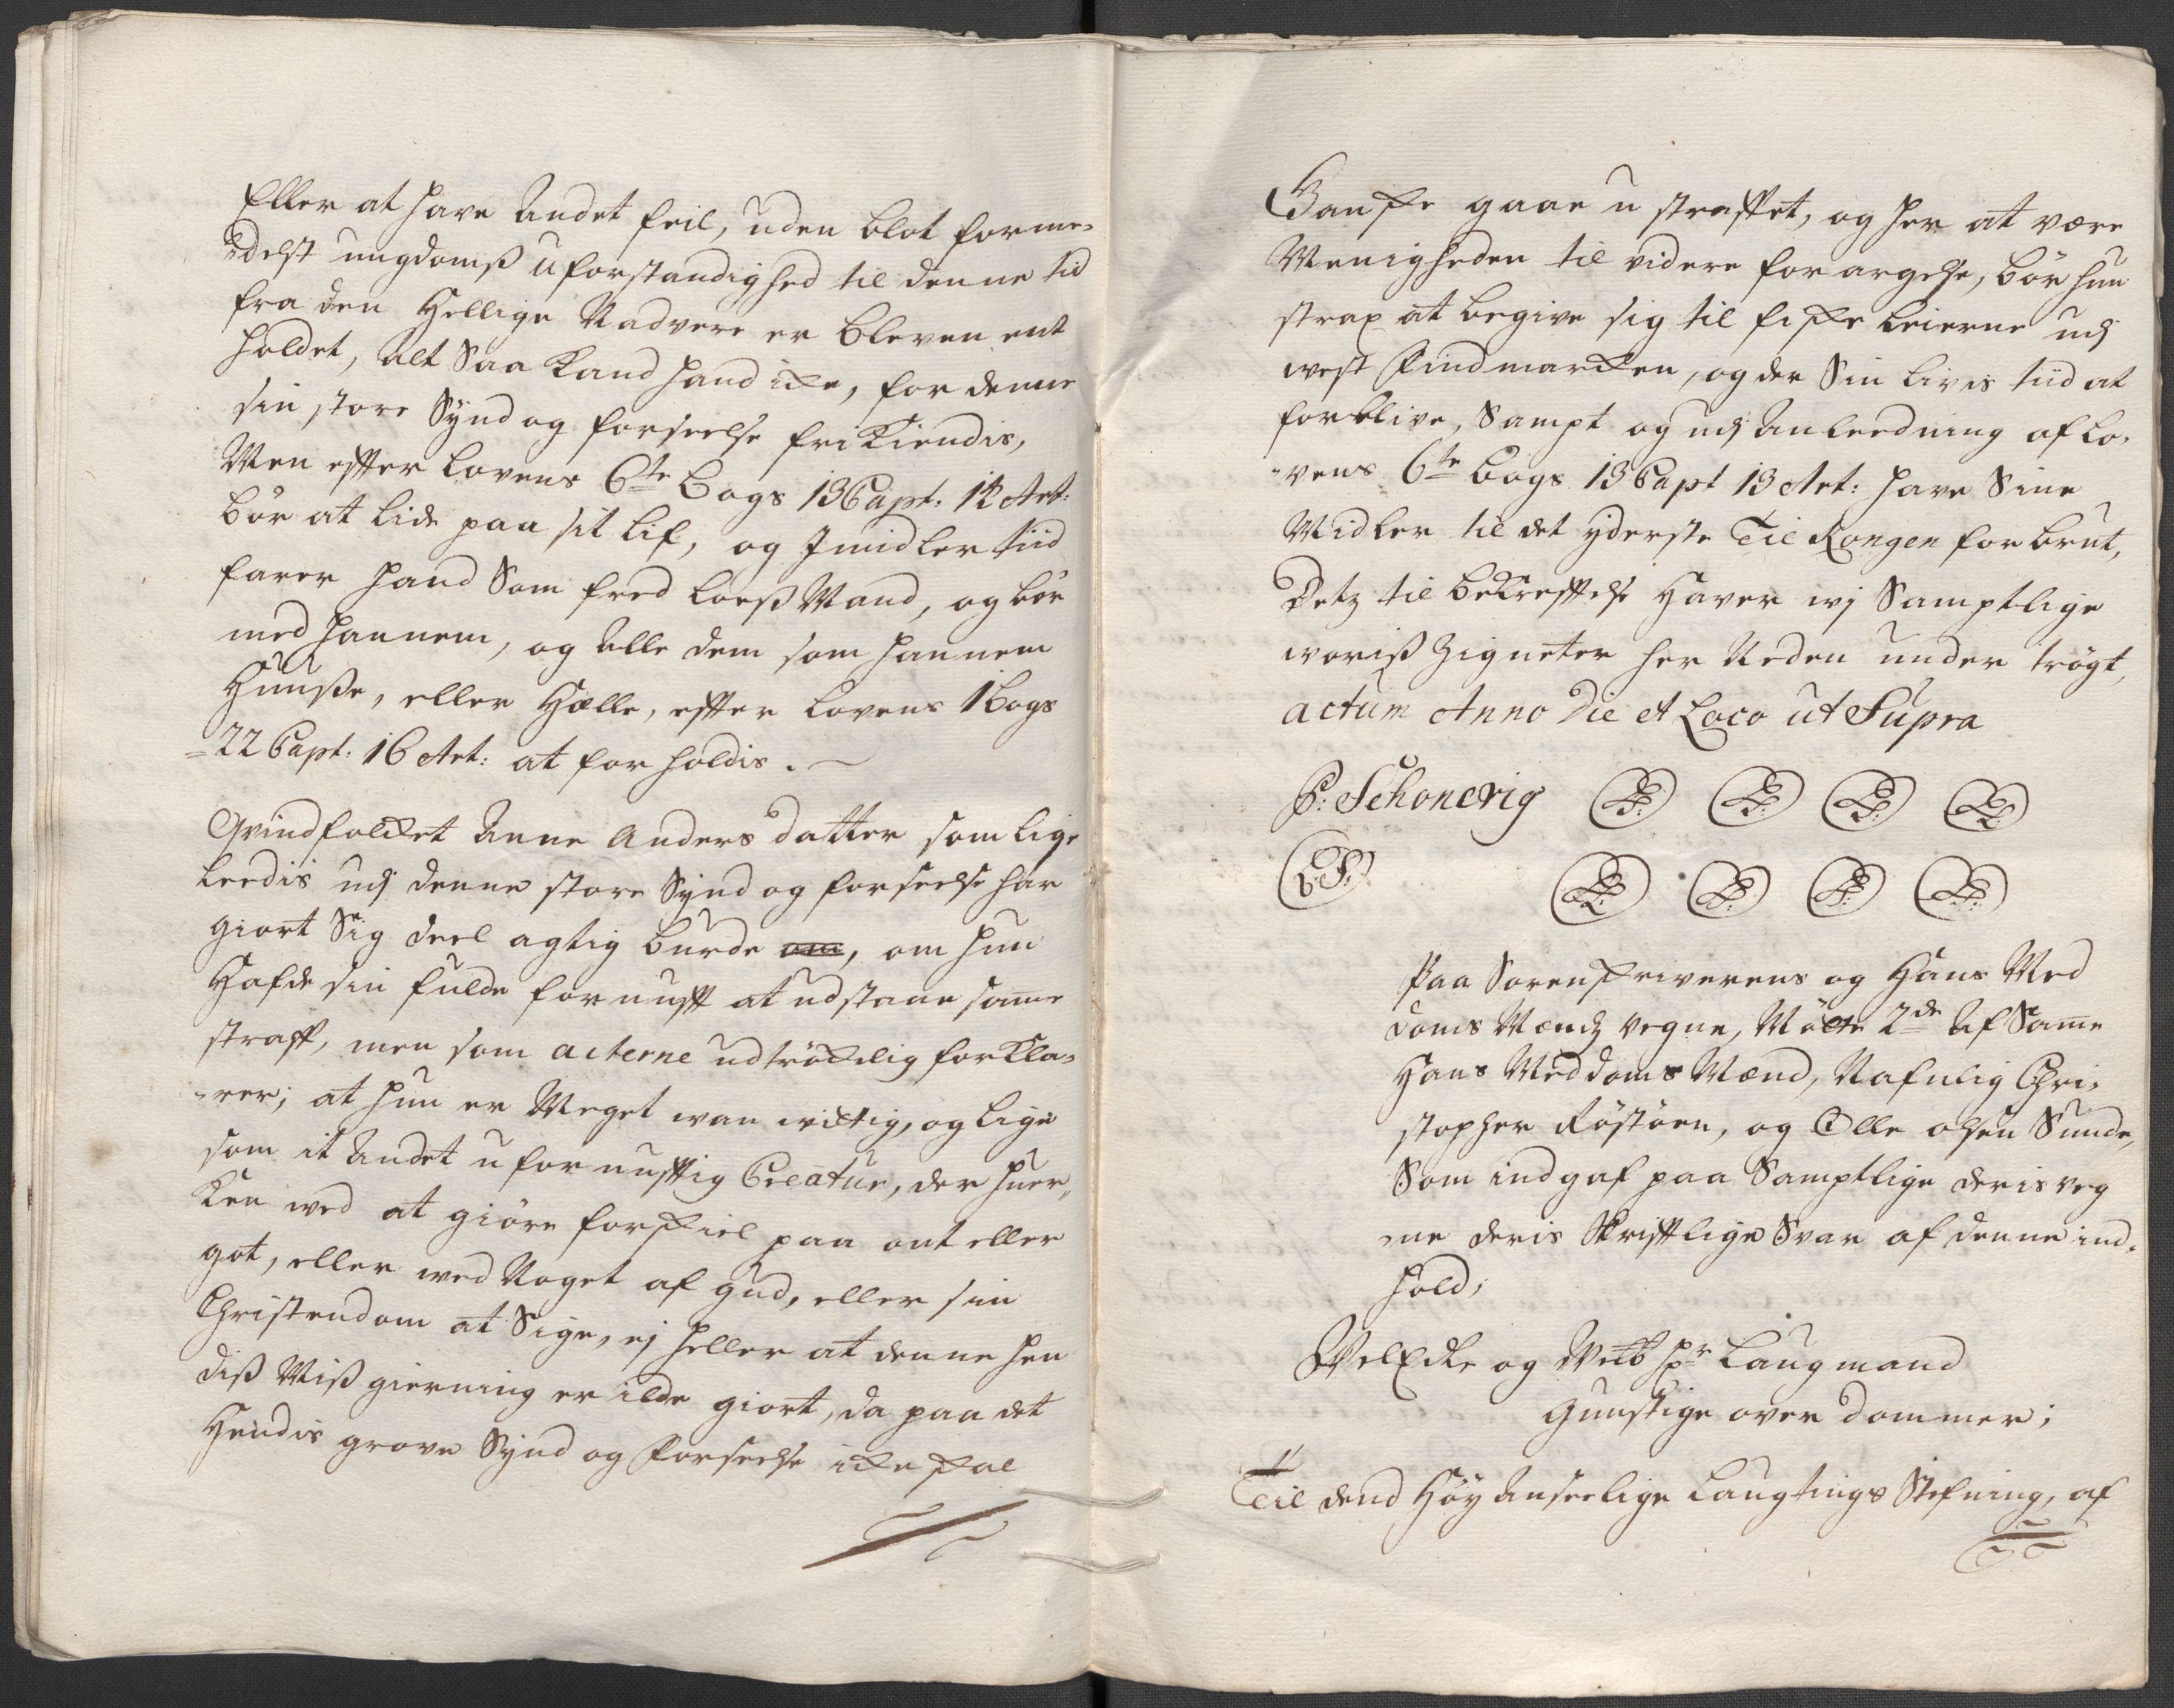 Eller at have Andet feil, uden blot forme-
delst ungdomß uforstandighed til denne tid
fra den Hellige Nadvere er bleven ent
holdet, alt Saa kand hand icke, for denne
sin store Synd og forseelse frikiendis,
Men effter Lovens 6te Bogs 13 Capt: 14 Art:
bör at lide paa sit lif, og Jmidler tiid
farer hand Som fred loeß Mand, og bör
med hannem, og Alle dem som hannem
Huuße, eller Hælle, effter Lovens 1 Bogs
=22 Capt: 16 Art: at for holdis.
Qvindfolcket Anne Anders datter som lige
leedis udj denne store Synd og forseelse har
giort Sig deel agtig burde om, om hun
Hafde sin fulde fornufft at udstaae same
straff, men som acterne udtröckelig forkla-
-rer; at hun er Meget wan wittig, og lige
som it Andet ufornufftig Creatur, der huer,,
ken wed at giöre forskiel paa ont eller
got, eller wed Noget af Gud, eller sin
Christendom at Sige, ej heller at denne hen
diß Mißgierning er ilde giort, da paa det
Hendis grove Synd og Forseelse icke skal
Ganske gaae u straffet, og her at være
Menigheden til videre forargelse, bör hun
strax at begive sig til fiske leierne udj
west Findmarcken, og der Sin livis tiid at
forblive, Sampt og udj Anleedning af Lo-
-vens 6te Bogs 13 Capt 13 Art: have Sine
Midler til det yderste Til Kongen forbrut,
Detz til bekrefftelse Haver wj Samptlige
woriß Zigneter her Neden under trögt,
actum Anno Die et Loco ut Supra
P: Schonevig L:S: L:S: L:S: L:S:
L:S: L:S: L:S: L:S: L:S:
Paa Sorenskriverens og Hans Med
doms Mendz vegne, Mötte 2de Af Same
Hans Meddoms Mænd, Nafnlig Chri-
stopher Röstöen, og Olle olsen Sunde,
Som indgaf paa Samptlige deris veg
ne deris Skrifftlige Svar af denne ind-
hold;
WelEdle og Welb: hr Laugmand
Gunstige over Dommer;
Til dend Höy Anseelige Laugtings Stefning, af